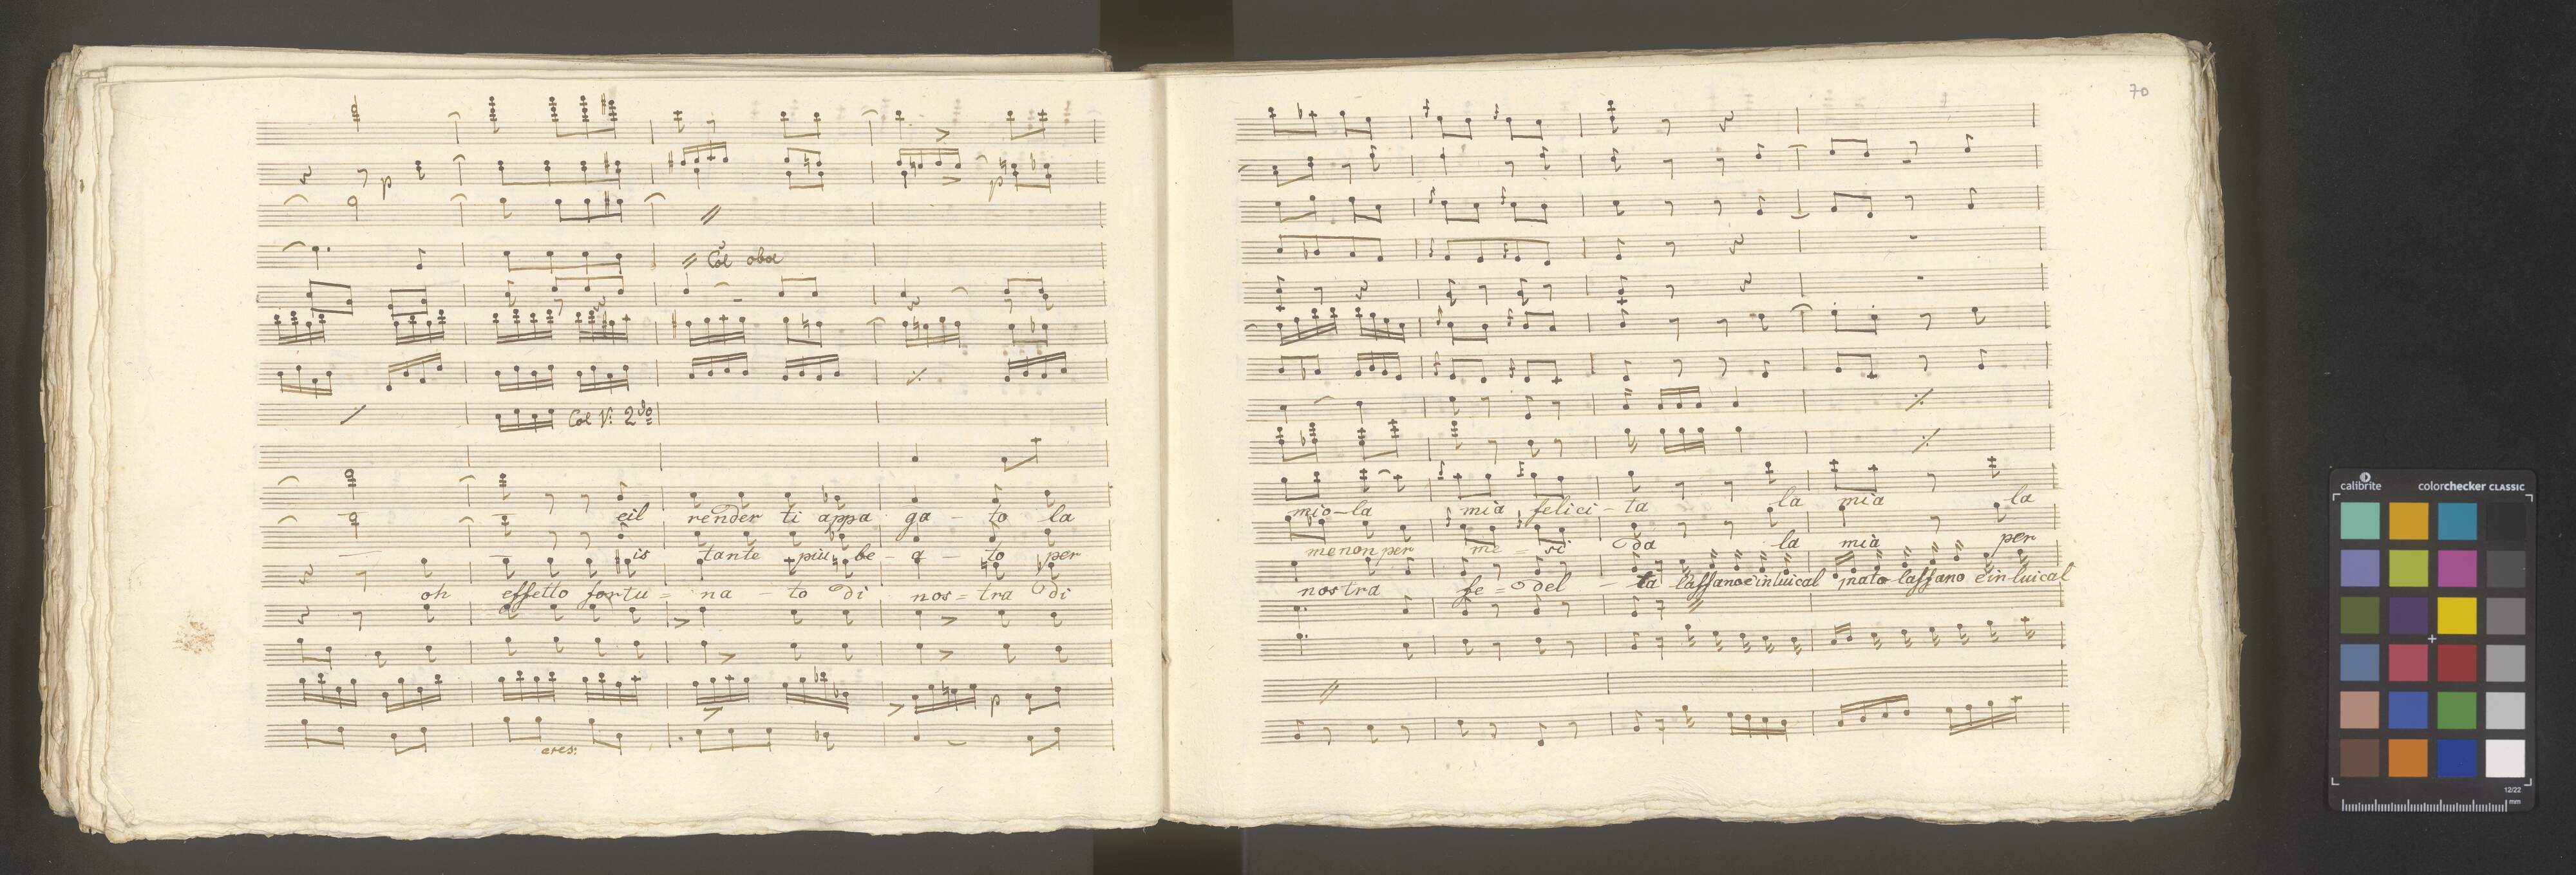 p
p
Col oboe
Col V: 2do
eil render ti appa ga - to la
is tante più be - a - to per
oh effetto fortu = na - to di nos = tra di
p
cres:
70
mio - la mia felici - ta la mia la
me non per me = si da la mia per
nostra fe = del - ta l'affano e in lui cal mato l'affano e in lui cal
calibrite colorchecker CLASSIC
12/22
mm